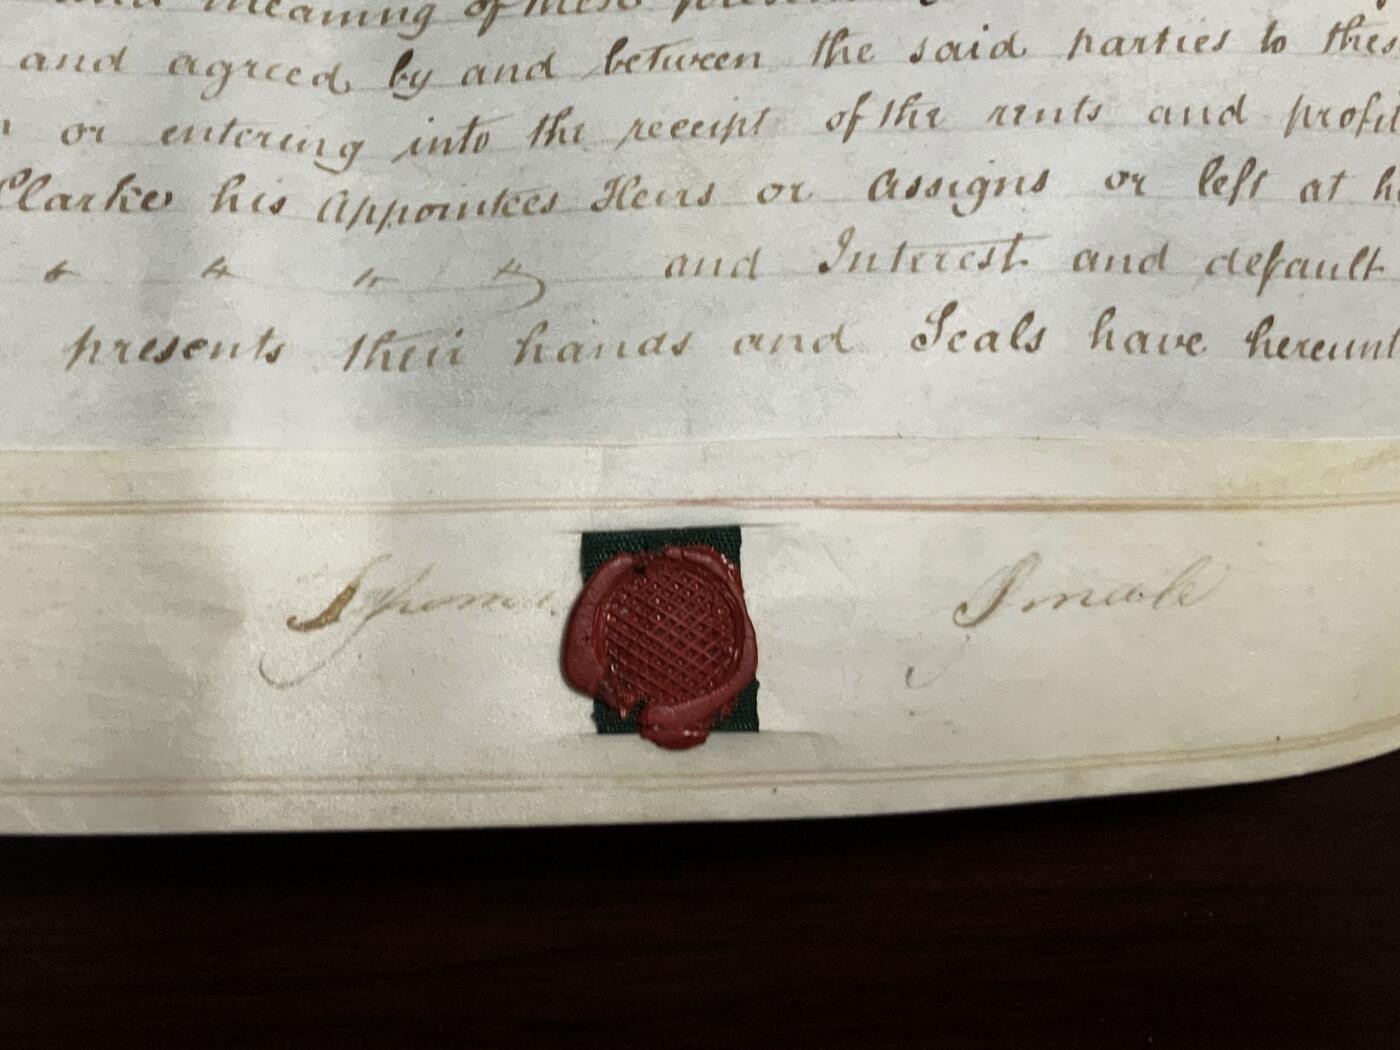 and meaning of these
and agreed by and between the said parties to thes
or entering into the receipt of the rents and profit
Clarke his Appointees Heirs or Assigns or left at h
and Interest and default
presents their hands and Seals have hereunt
Thomas Smale